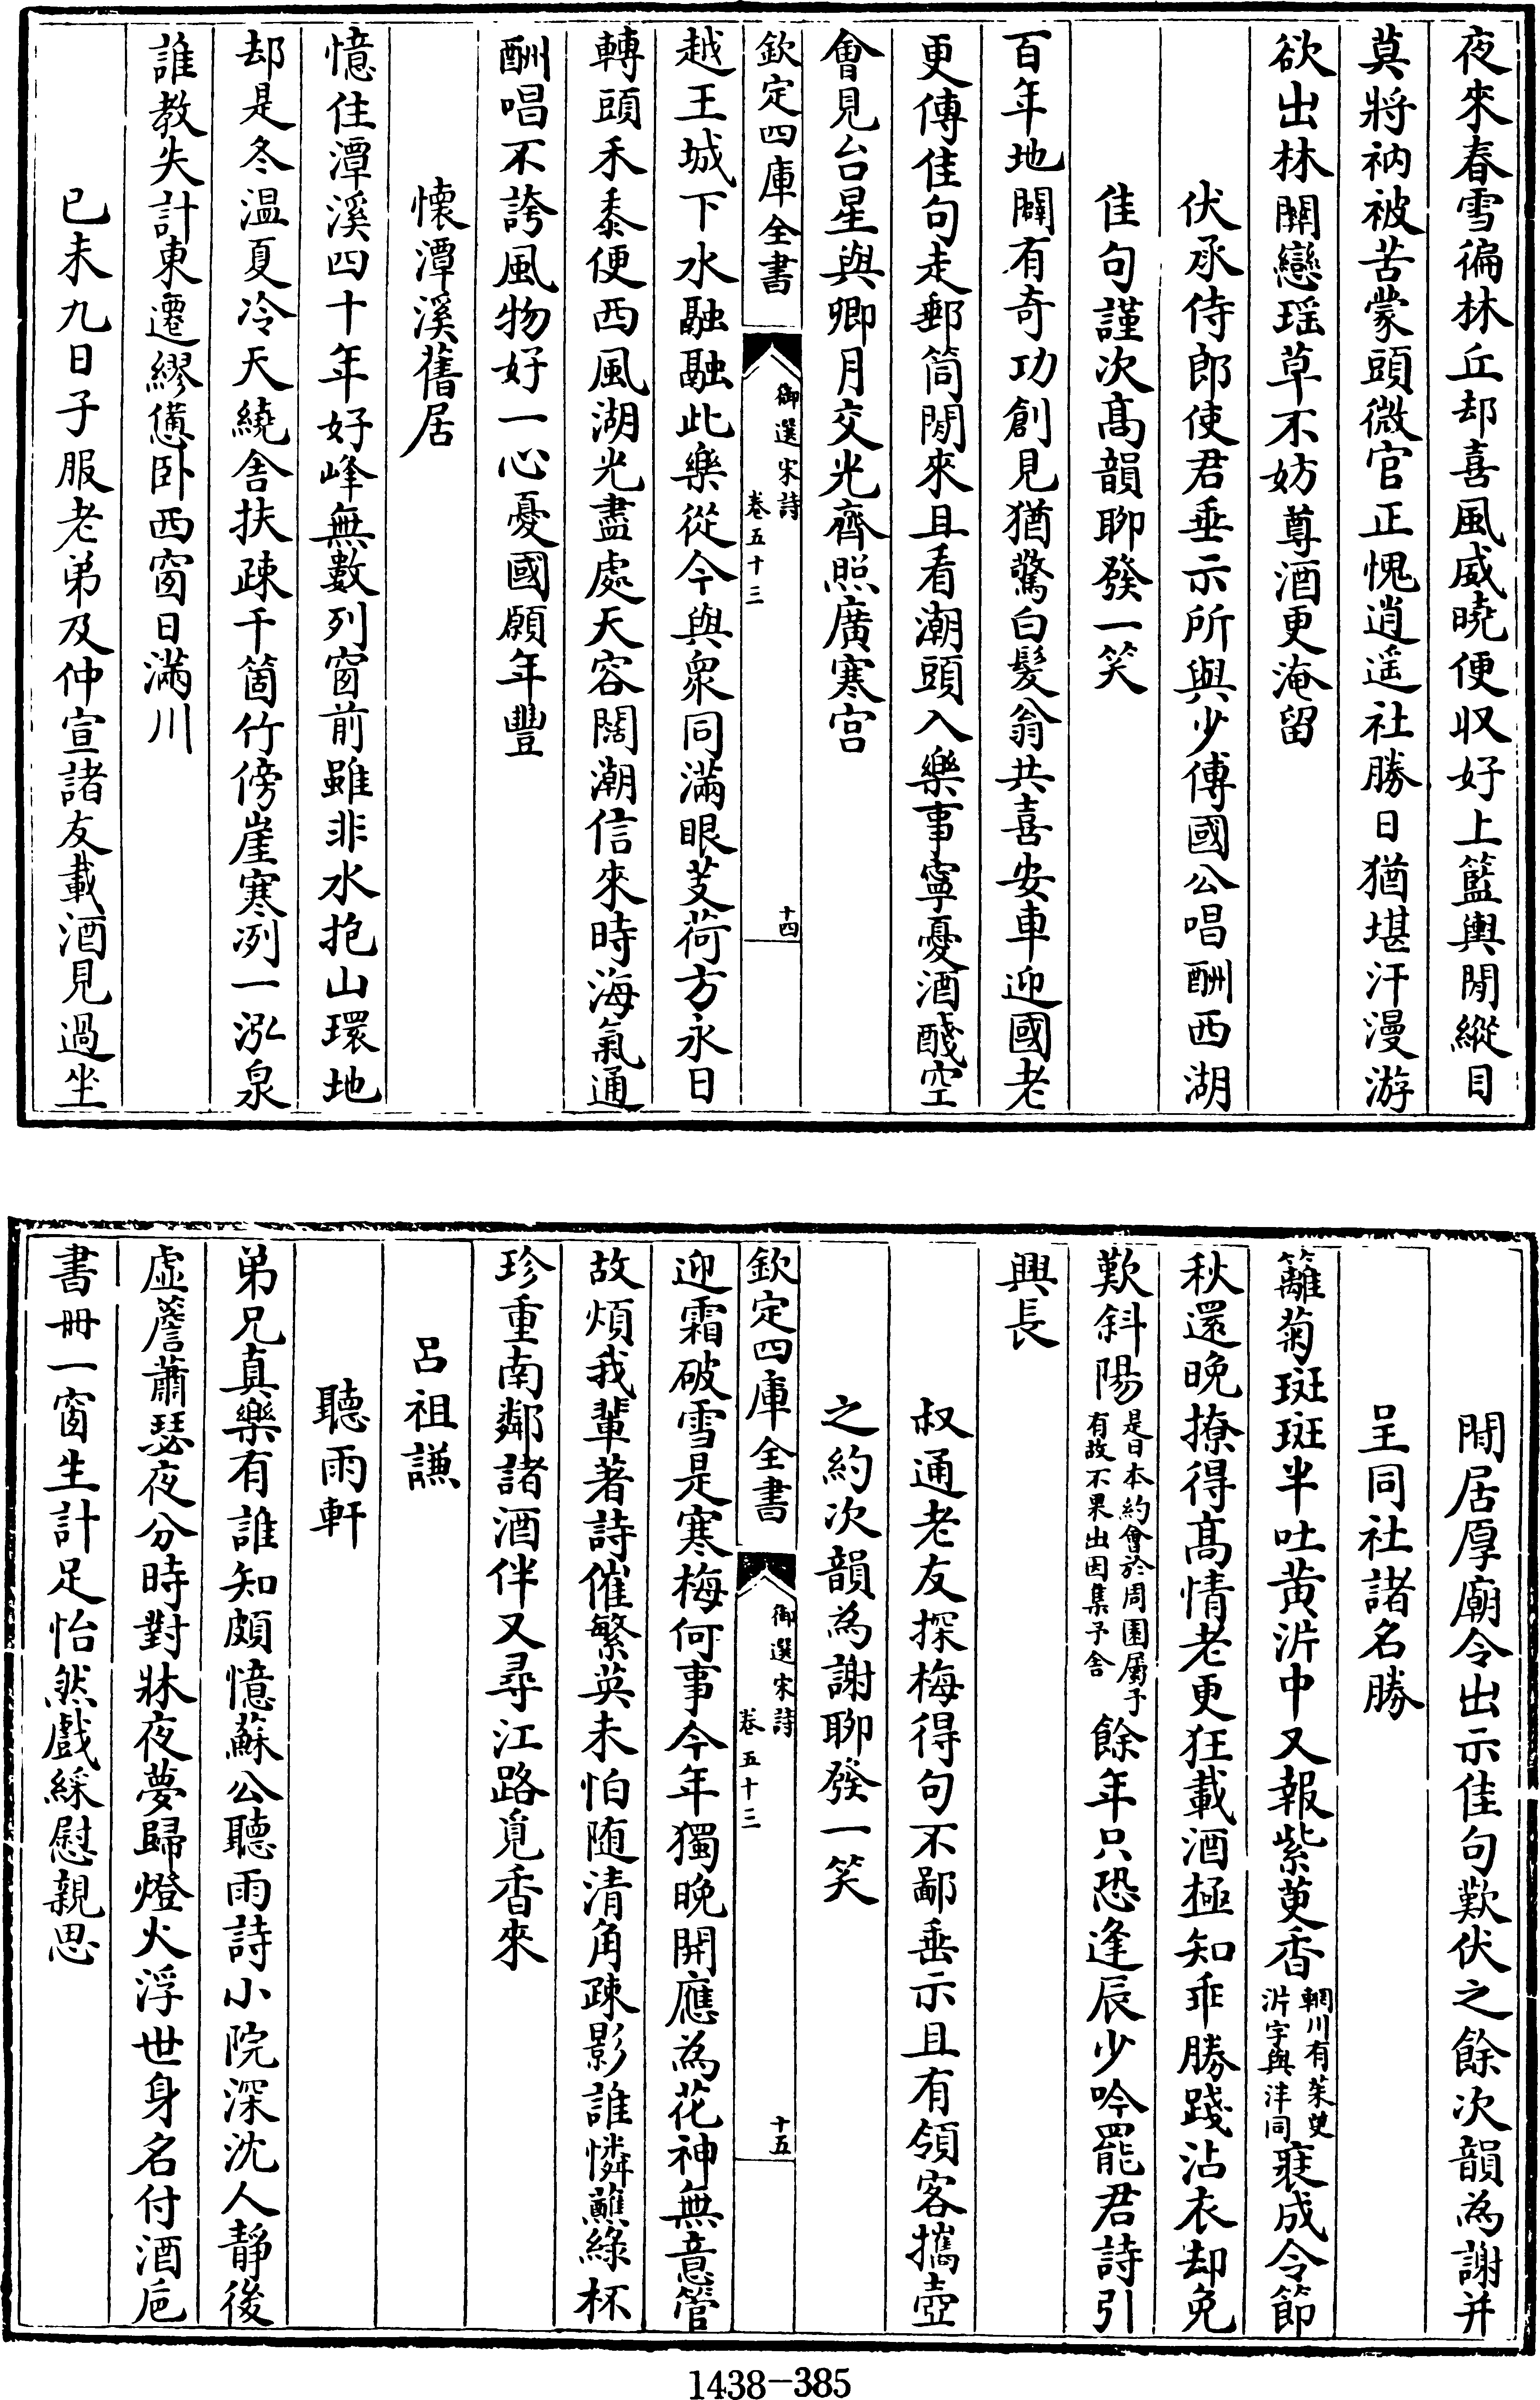 夜來春雪徧林丘却喜風威曉便収好上籃輿閒縱目
莫將衲被苦蒙頭微官正愧逍遥社勝日猶堪汗漫游
欲出林關戀瑶草不妨尊酒更淹留
伏承侍郎使君垂示所與少傅國公唱酬西湖
佳句謹次髙韻聊發一笑
百年地闢有奇功創見猶驚白髮翁共喜安車迎國老
更傳佳句走郵筒閒來且看潮頭入樂事寧憂酒醆空
會見台星與卿月交光齊照廣寒宫
欽定四庫全書
御選宋詩
卷五十三
十四
越王城下水融融此樂從今與衆同滿眼芰荷方永日
轉頭禾黍便西風湖光盡處天容闊潮信來時海氣通
酬唱不誇風物好一心憂國願年豐
懷潭溪舊居
憶住潭溪四十年好峰無數列窗前雖非水抱山環地
却是冬温夏冷天繞舎扶疎千箇竹傍崖寒冽一泓泉
誰教失計東遷繆憊卧西窗日滿川
已未九日子服老弟及仲宣諸友載酒見過坐
間居厚廟令出示佳句歎伏之餘次韻為謝并
呈同社諸名勝
籬菊斑斑半吐黄沜中又報紫萸香
輞川有茱萸
沜字與泮同
寢成令節
秋還晚撩得髙情老更狂載酒極知乖勝踐沾衣却免
歎斜陽
是日本約會於周園屬予
有故不果出因集予舎
餘年只恐逢辰少吟罷君詩引
興長
叔通老友探梅得句不鄙垂示且有領客攜壺
之約次韻為謝聊發一笑
欽定四庫全書
御選宋詩
卷五十三
十五
迎霜破雪是寒梅何事今年獨晚開應為花神無意管
故煩我輩著詩催繁英未怕随清角疎影誰憐蘸綠杯
珍重南鄰諸酒伴又尋江路覓香來
呂祖謙
聽雨軒
弟兄真樂有誰知頗憶蘇公聽雨詩小院深沈人靜後
虚簷蕭瑟夜分時對牀夜夢歸燈火浮世身名付酒巵
書冊一窗生計足怡然戲綵慰親思
1438-385